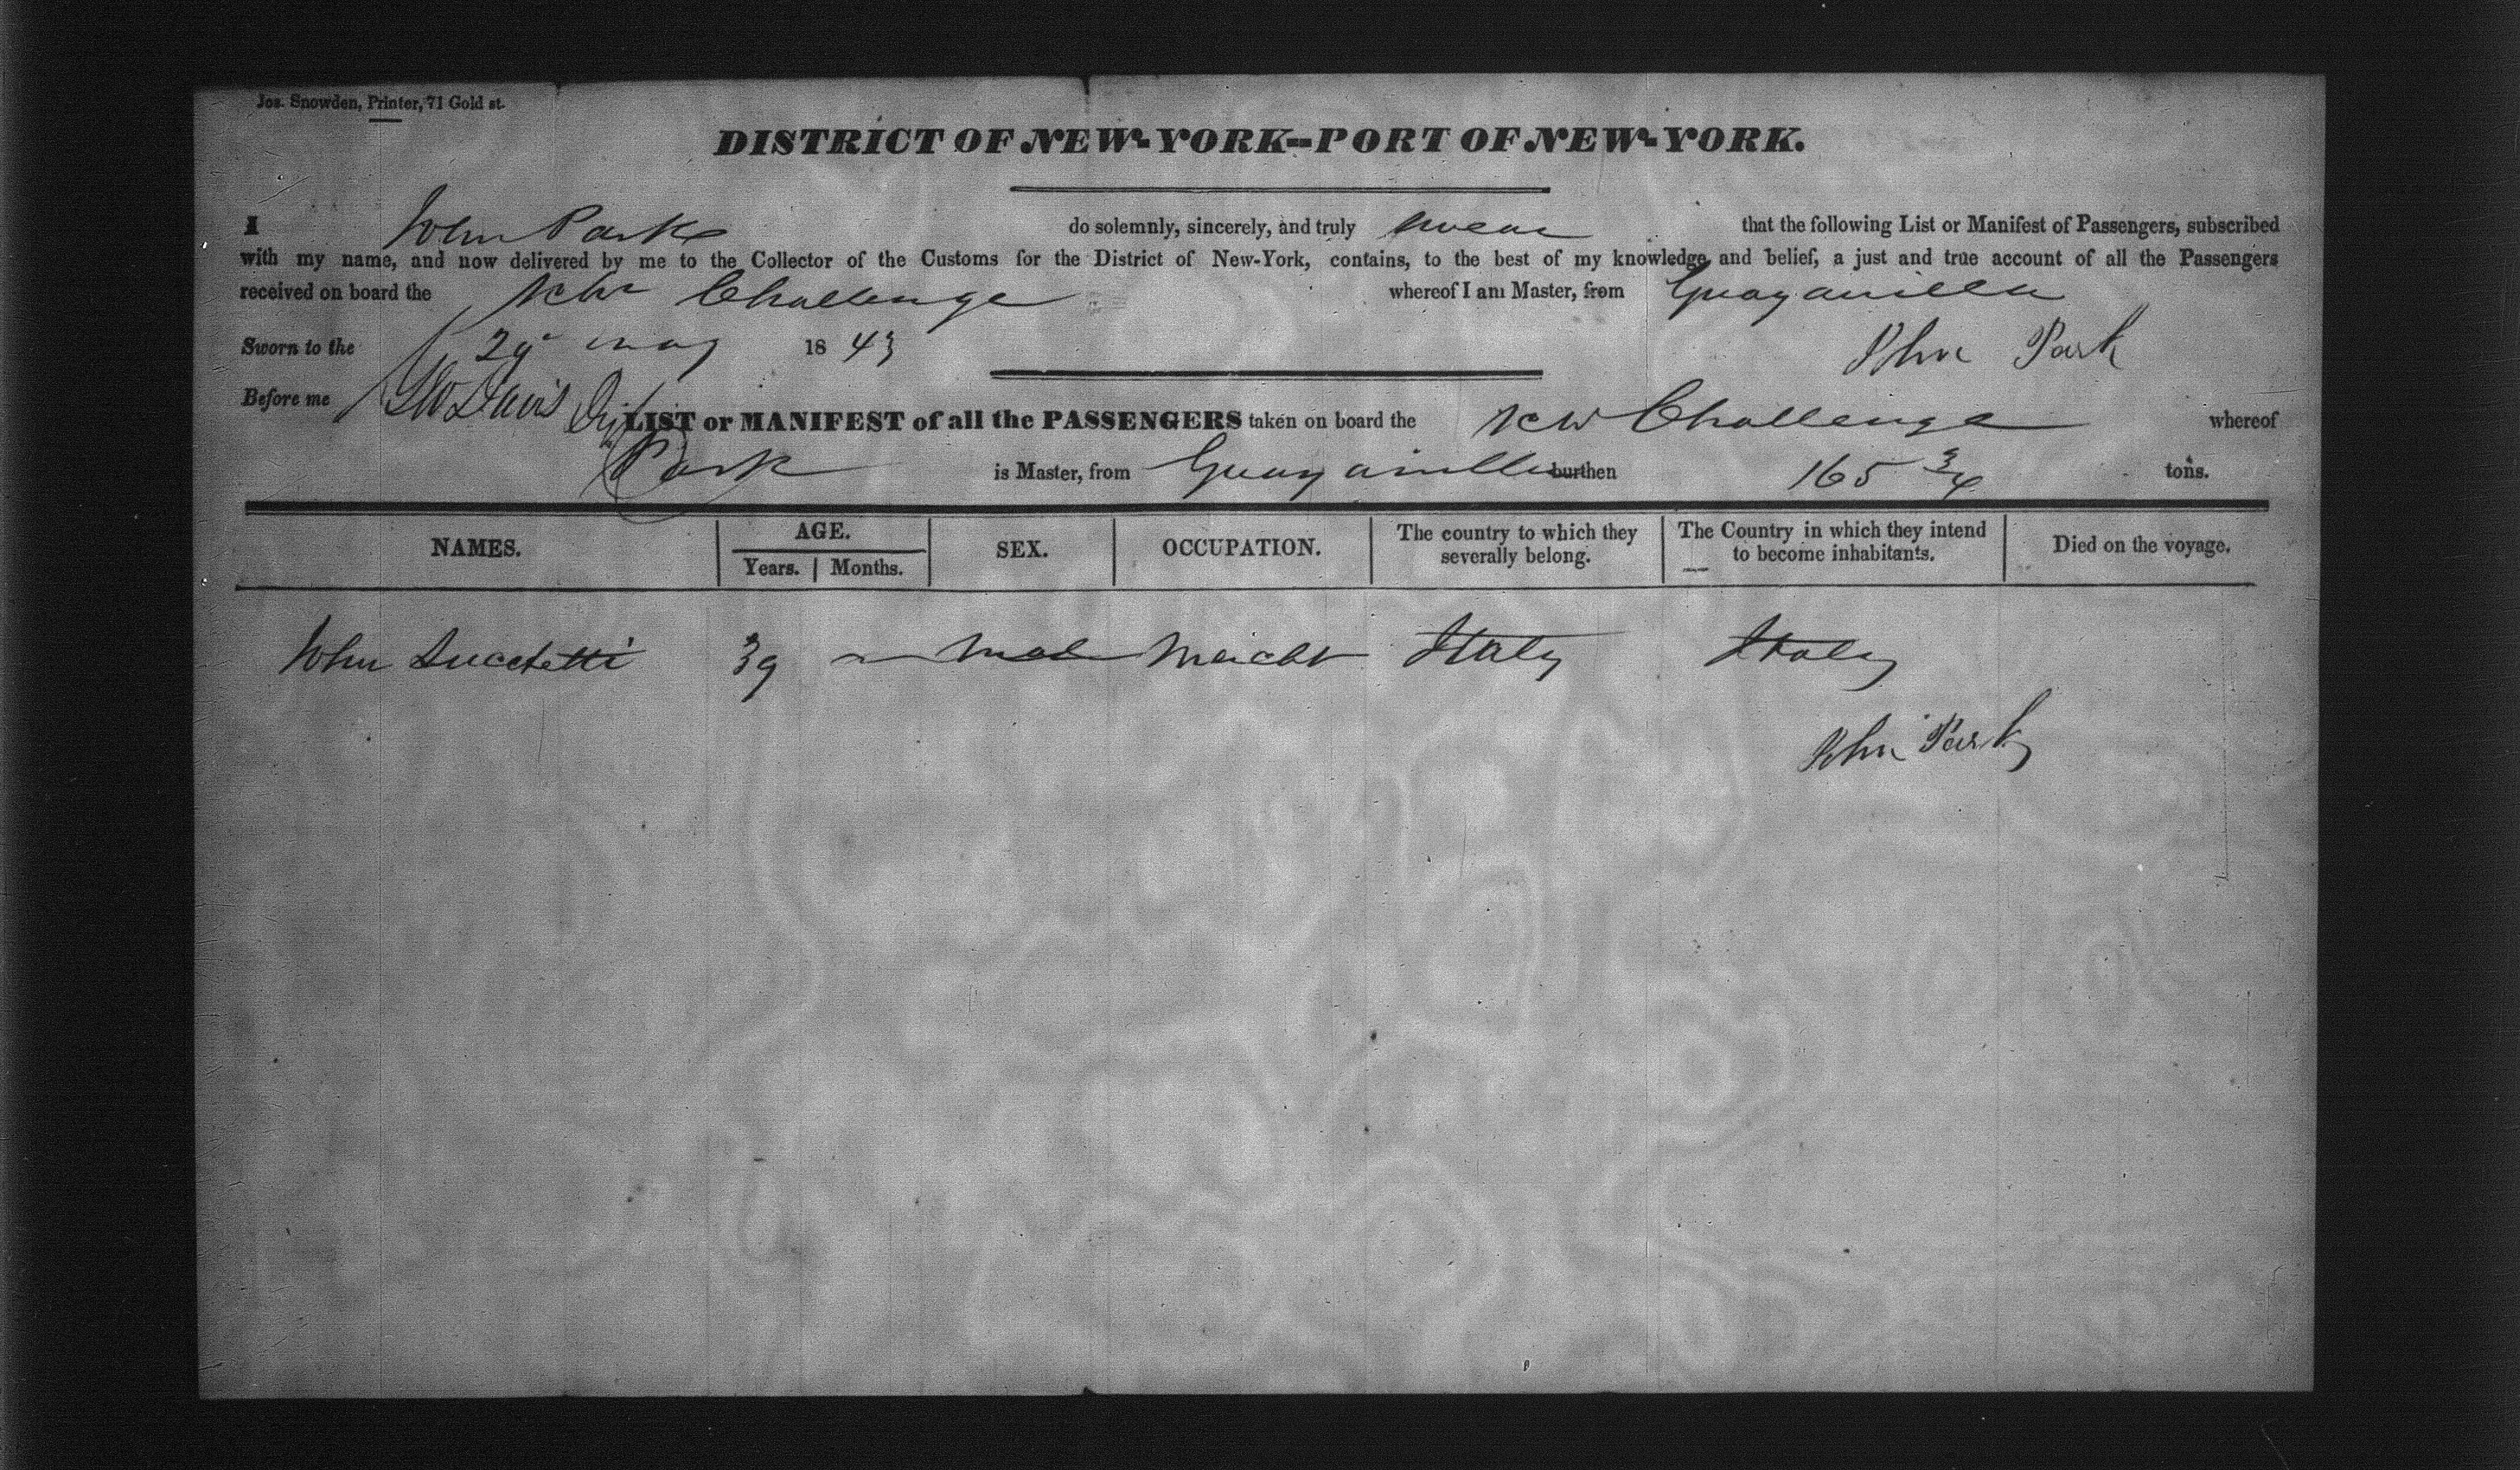 Jos. Snowden, Printer, 71 Gold st.
DISTRICT OF NEW-YORK--PORT OF NEW-YORK.
I John Park do solemnly, sincerely, and truly swear that the following List or Manifest of Passengers, subscribed
with my name, and now delivered by me to the Collector of the Customs for the District of New-York, contains, to the best of my knowledge and belief, a just and true account of all the Passengers
received on board the Schr Challenge whereof I am Master, from Guayanilla
Sworn to the 29 May 1843 John Park
Before me Davis
LIST or MANIFEST of all the PASSENGERS taken on board the Schr Challenge whereof
Park is Master, from Guayanilla burthen 165 3/4 tons.
NAMES. AGE. Years. Months. SEX. OCCUPATION. The country to which they severally belong. The Country in which they intend to become inhabitants. Died on the voyage.
John Lucchetti 39 — Male Mercht Italy Italy
John Park